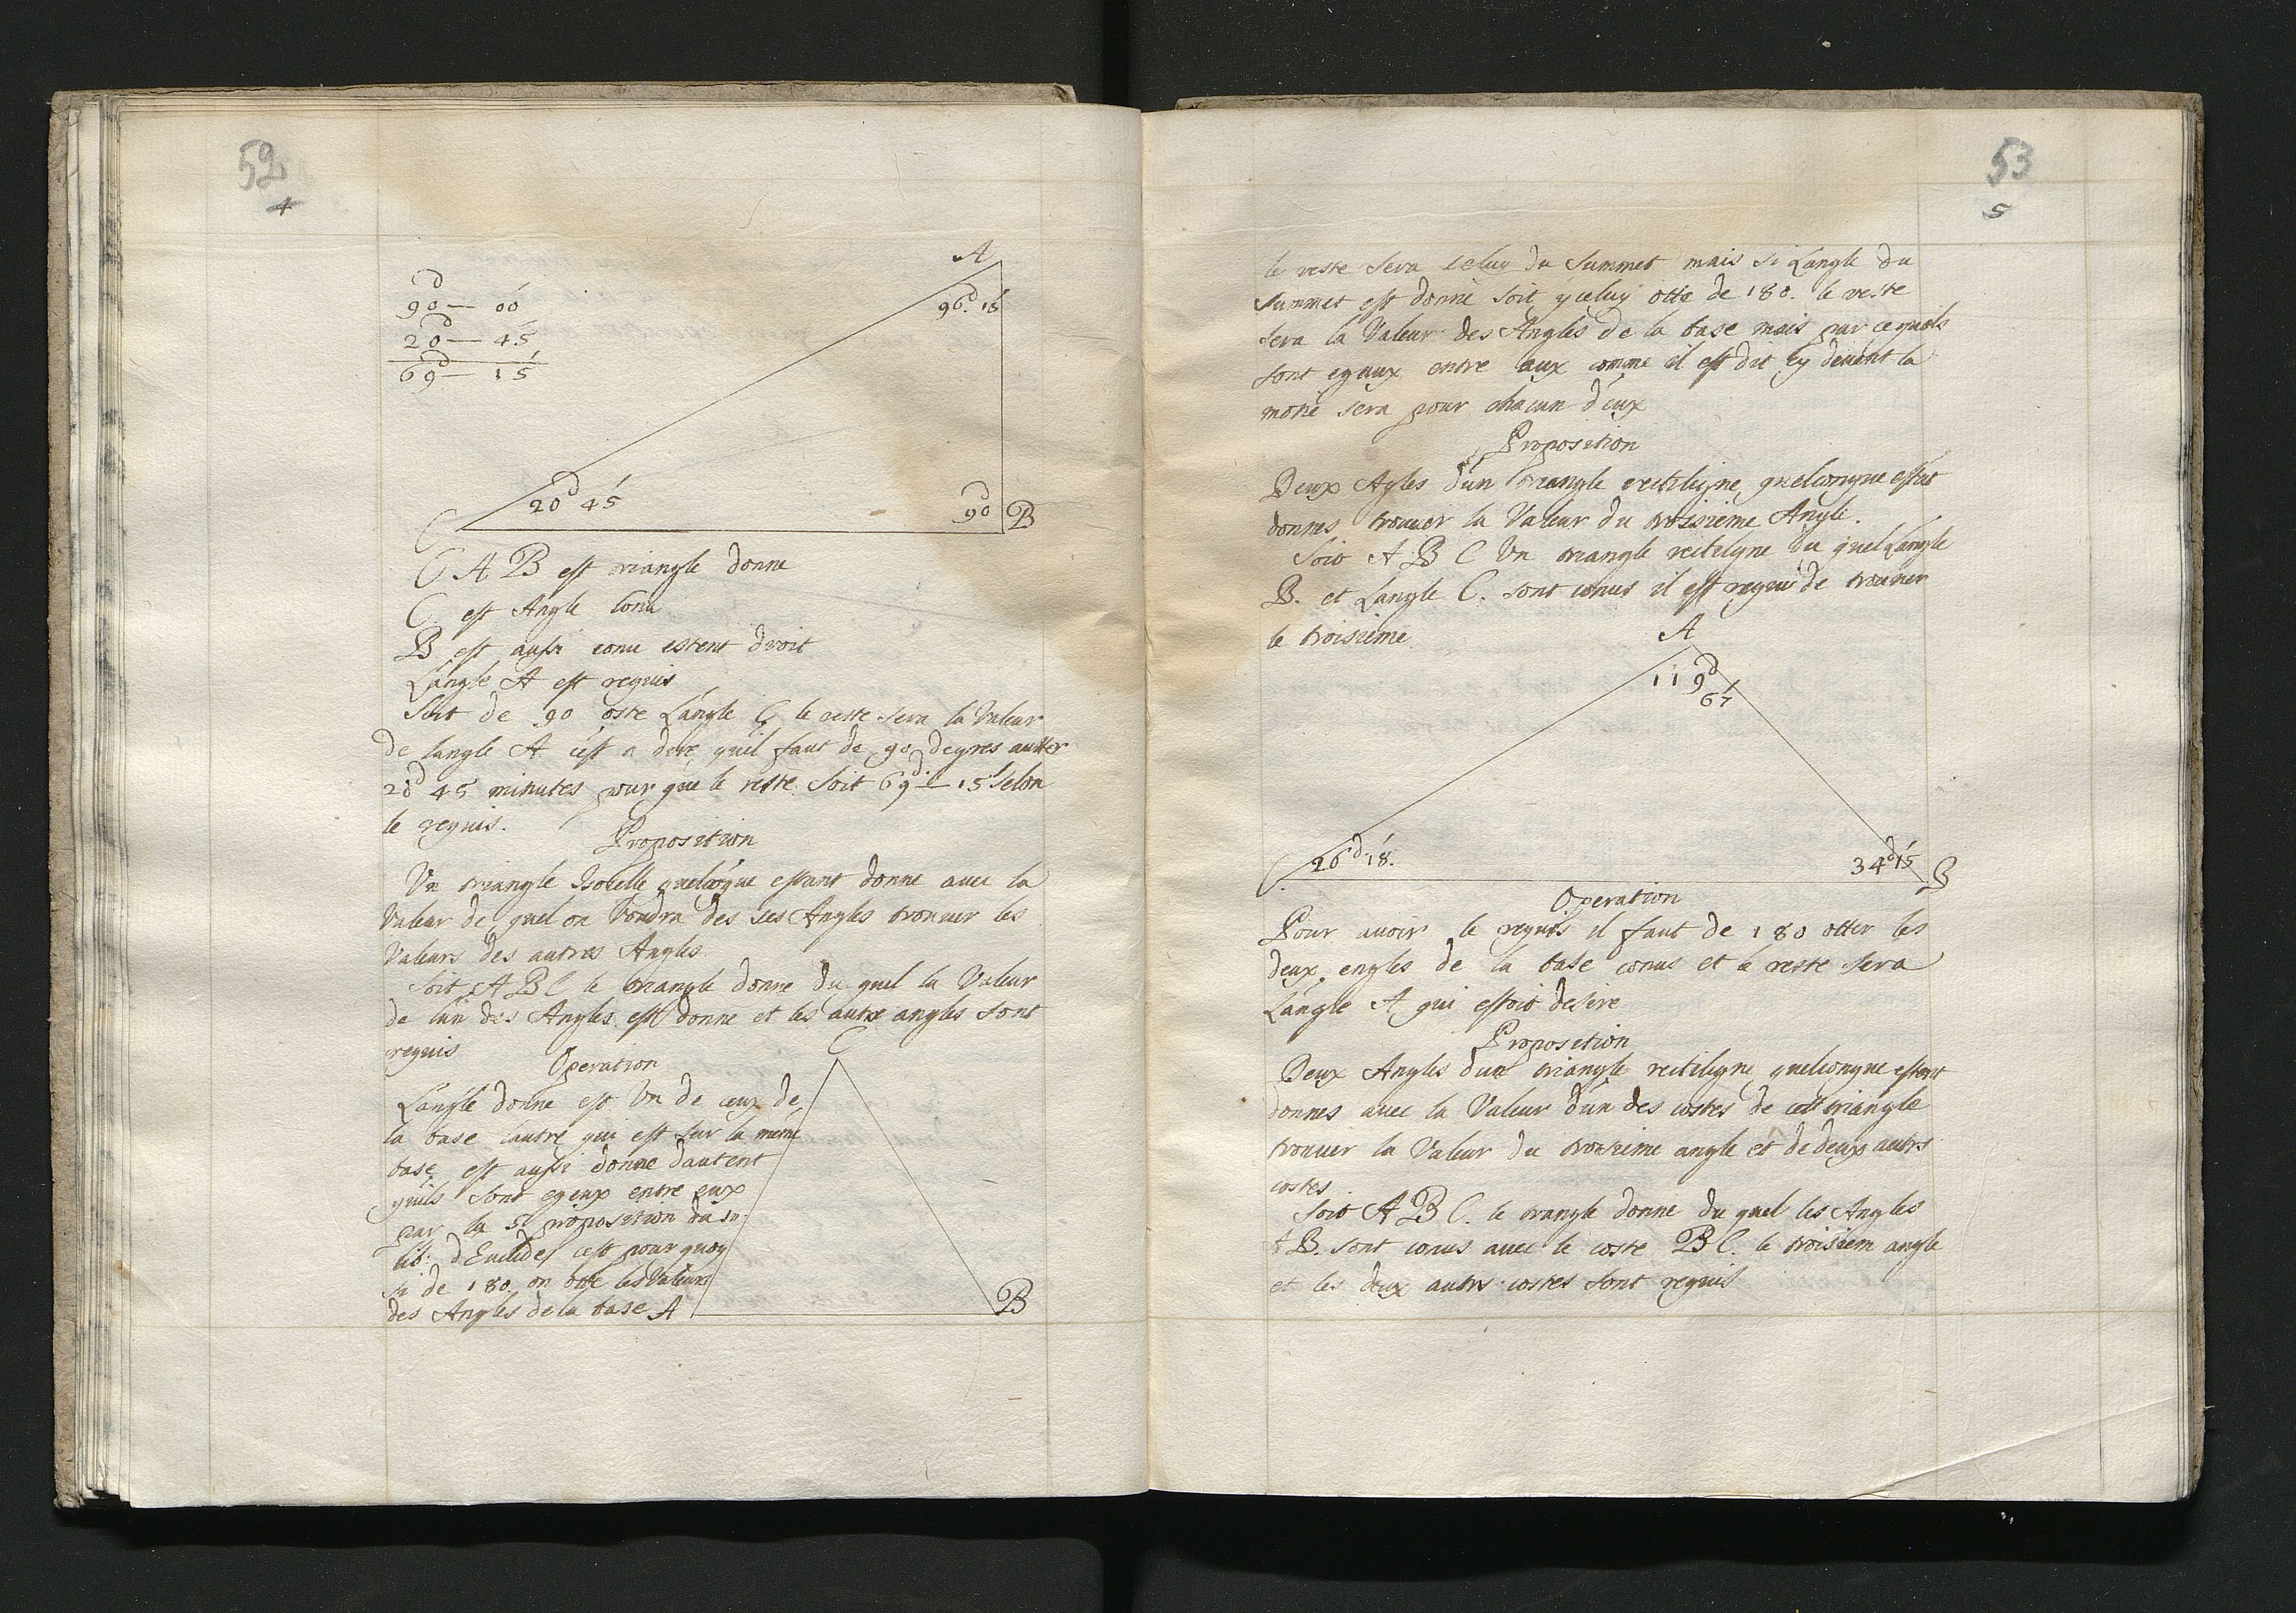 52
4
A
d
90 — 00
20d — 45
69d — 15
96d. 15
20d 45
90d
C
B
C A B est triangle donne
C. est Angle Conu
B est aussi conu estent droit
Langle A est requis
Soit de 90 oste Langle C le reste sera la Valeur
de langle A cest a dire quil faut de 90 degres autter
20d 45 minutes pour que le reste Soit 69d — 15' Selon
le requis.
Proposition
Un triangle Isocelle quelcoque estant donne avec la
Valeur de quel on Voudra des ses Angles trouver les
Valeurs des autres Angles.
Soit A B C le triangle donne du quel la Valeur
de lun des Angles est donne et les autre angles sont
requis
Operation
C
Langle donne est Un de ceux de
la base lautre qui est sur la meme
base est aussi donne dautent
quils sont egeux entre eux
par la 5. proposition du
lib. d'Euclides cest pour quoy
si de 180. on oste les Valeurs
des Angles de la base A
B
53
5
le reste sera celuy du Summet mais si Langle du
Summet est donne soit yceluy otte de 180. le reste
sera la Valeur des Angles de la base mais par ce quils
sont egaux entre eux comme il est dit cy devent la
motie sera pour chacun deux
Proposition
Deux Agles dun triangle rectiligne quelconque estat
donnes trouver la Valeur du troisieme Angle.
Soit A B C Un triangle rectiligne du quel Langle
B. et Langle C. sont conus il est requis de trouver
le troisieme
A
119d
67
26d 18.
34d 15
C
B
Operation
Pour avoir le requis il faut de 180 otter les
deux engles de la base conus et le reste sera
Langle A qui estoit desire
Proposition
Deux Angles dun triangle rectiligne quelconque estent
donnes avec la Valeur dun des costes de cett triangle
trouver la Valeur du troisieme angle et de deux autrs
costes
Soit A B C. le trangle donne du quel les Angles
A B. sont conus avec le coste B C. le troisiem angle
et les deux autrs costes sont requis